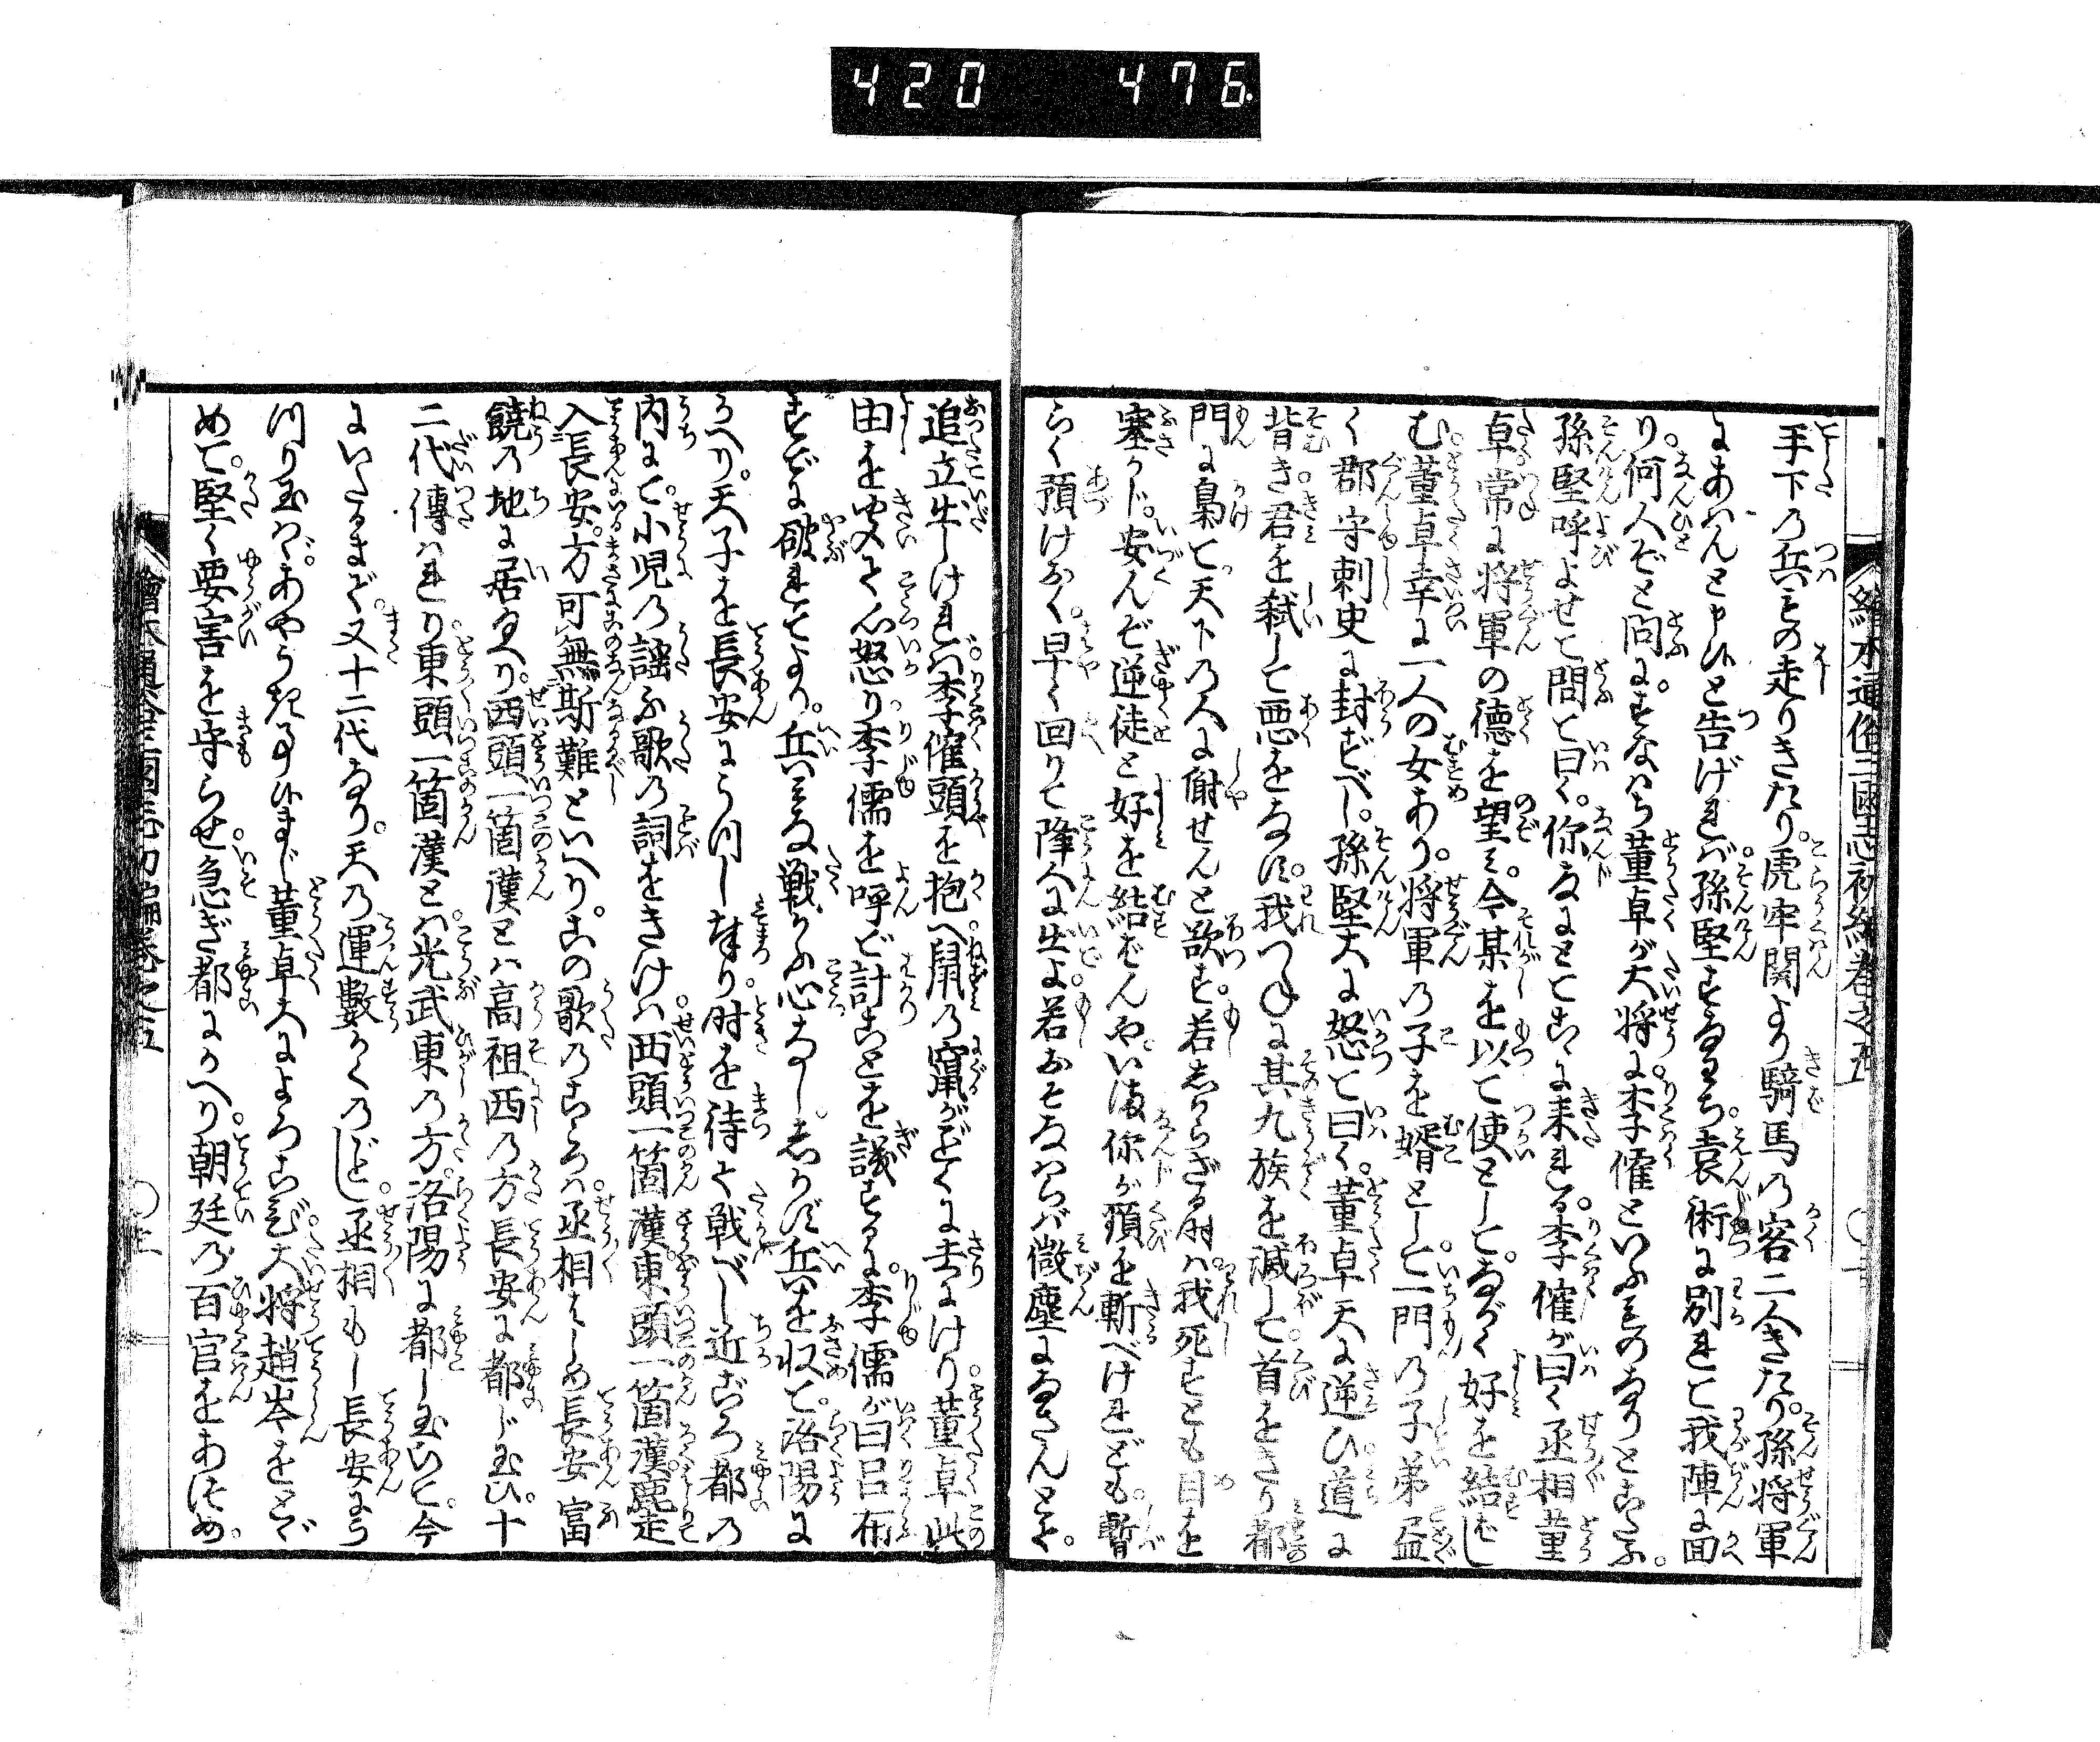 420 476.
繪本通俗三國志初編卷之五
手下の兵もの走りきたり。虎牢関より騎馬の客二人きたり。孫将軍
にあはんと申候と告げれば。孫堅すなはち。袁術に別れて我陣に面
り。何人ぞと問に。すなはち董卓が大将に。李傕といふものなりとこたふ。
孫堅呼よせて問て曰く。你なにとてこゝに来れる。李傕が曰く丞相董
卓常に将軍の德を望み。今某を以て使として。ながく好を結ばし
む。董卓幸に一人の女あり。将軍の子を婿として。一門の子弟盃
く郡守刺史に封ずべし。孫堅大に怒て曰く。董卓天に逆ひ道に
背き。君を弑して悪をなす。我つねに其九族を滅して首をきり都
門に梟て天下の人に謝せんと欲す。若しからざる時は。我死すとも目を
塞がじ。安んぞ逆徒と好を結ばんや。いま你が頚を斬べけれども。暫
らく預けおく。早く回りて降人に出よ。若おそなはらば微塵になさんとぞ。
追立出しければ。李傕頭を抱へ鼠の竄がごとくに去にけり。董卓此
由をきいて心怒り。李儒を呼ど計ことを議するに。李儒が曰呂布
すでに破れてより。兵みな戦かふ心なし。しかず兵を収て。洛陽に
かへり。天子を長安にうつし奉り。時を待て戦べし。近ごろ都の
内にて。小児の謡ふ歌の詞をきけば。西頭一箇漢。東頭一箇漢。鹿走
入長安。方可無斯難といへり。この歌のこゝろは。丞相はじめ長安富
饒の地に居なへり。西頭一箇漢とは高祖西の方長安に都し玉ひ。十
二代傳はれり。東頭一箇漢とは。光武東の方。洛陽に都し玉ひて。今
にいたるまで。又十二代なり。天の運數かくのごとし。丞相もし長安にう
つり玉はゞ。あやうき事候まじ。董卓大によろこび。大将趙岑をとゞ
めて。堅く要害を守らせ。急ぎ都にかへり。朝廷の百官をあつめ。